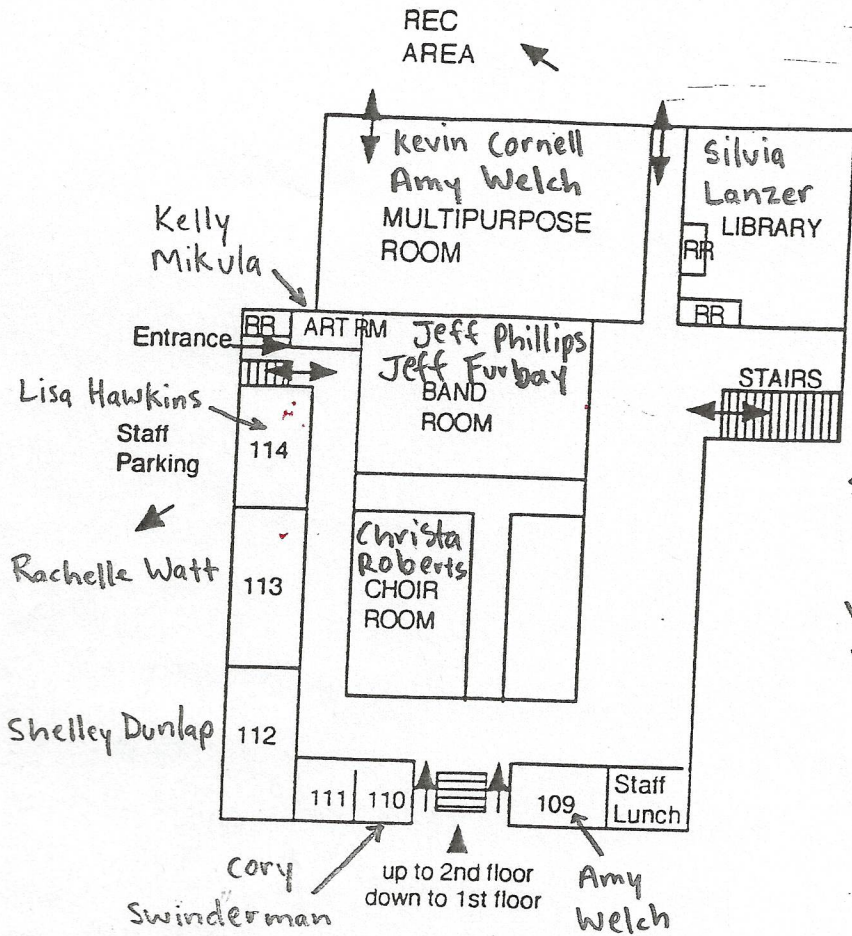 REC
AREA
Kevin Cornell
Amy Welch
MULTIPURPOSE
ROOM
Silvia
Lanzer
LIBRARY
RR
RR
Kelly
Mikula
RR
ART RM
Entrance
Jeff Phillips
Jeff Furbay
BAND
ROOM
STAIRS
Lisa Hawkins
Staff
Parking
114
Rachelle Watt
113
Christa
Roberts
CHOIR
ROOM
Shelley Dunlap
112
111
110
109
Staff
Lunch
up to 2nd floor
down to 1st floor
Cory
Swinderman
Amy
Welch